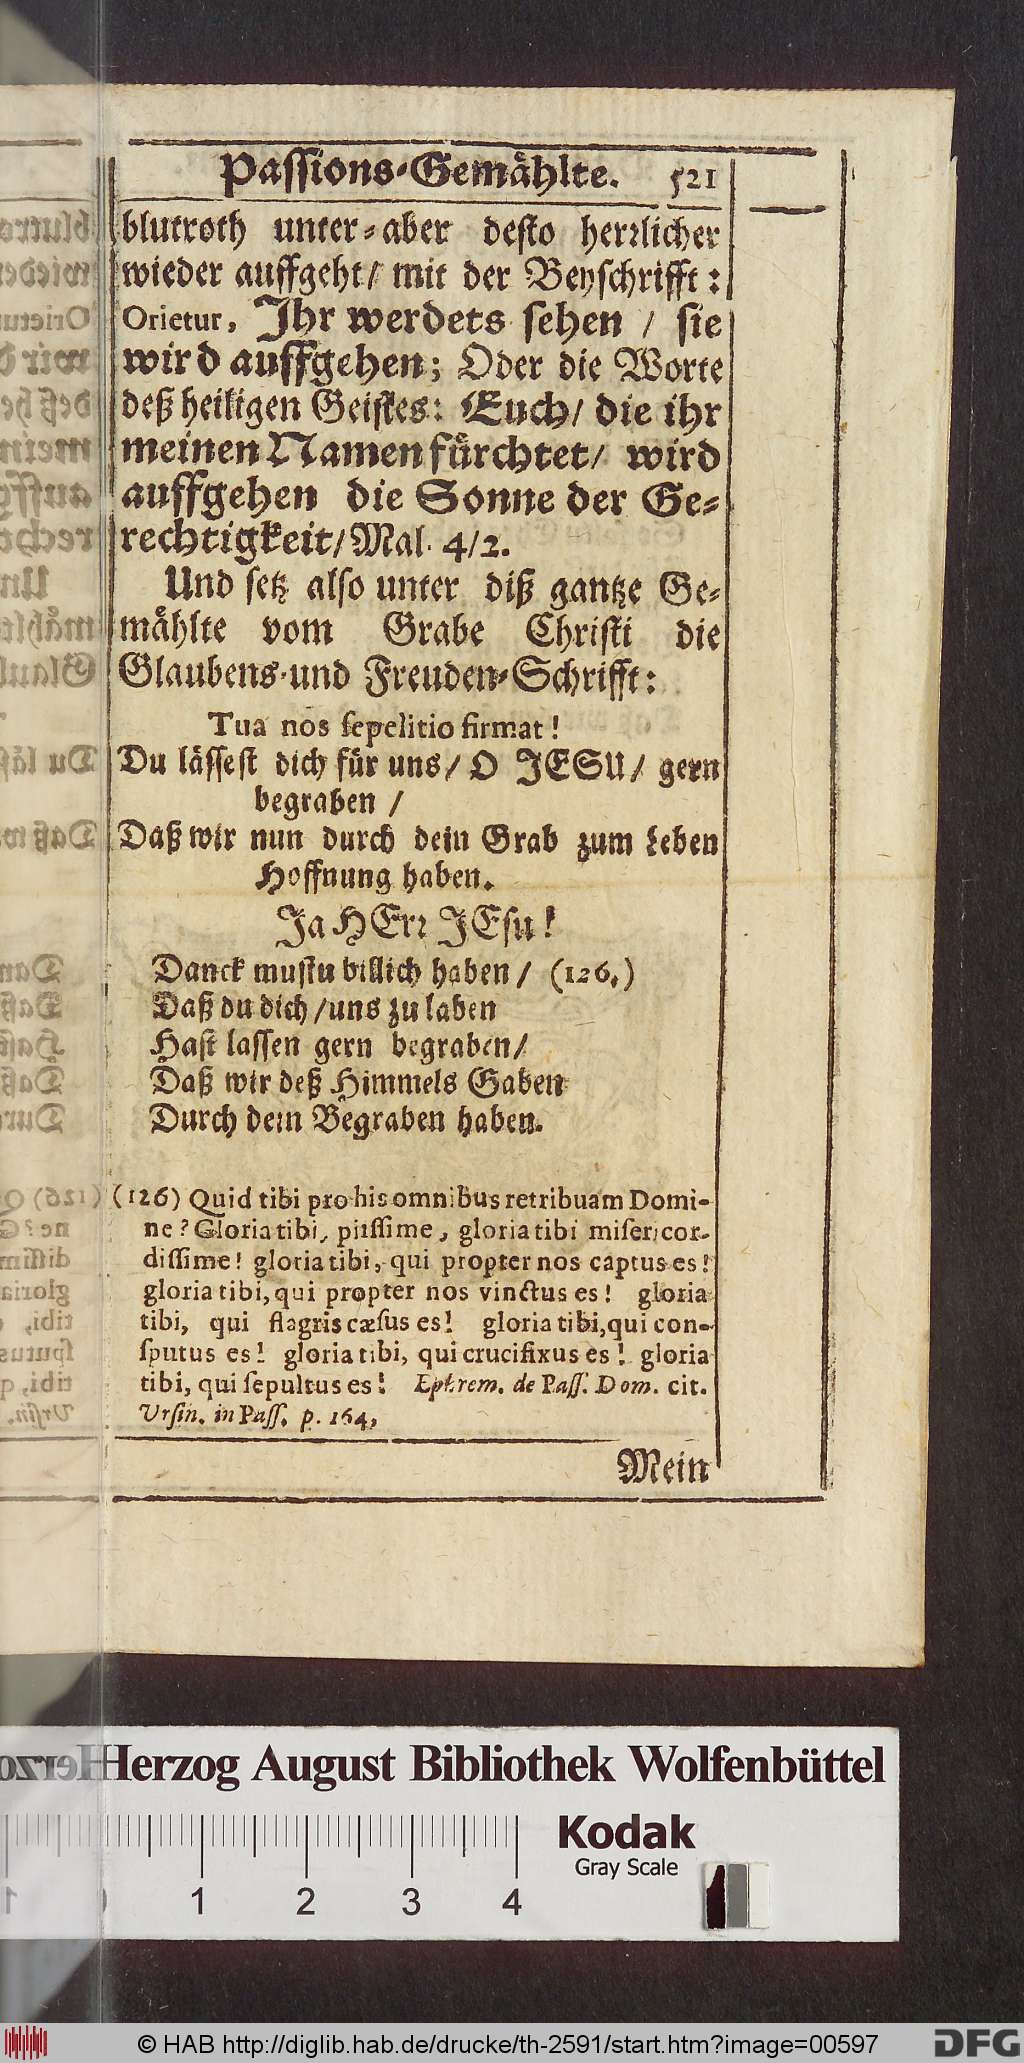 Passions-Gemåhlte. 521
blutroth unter-aber desto herꝛlicher
wieder auffgeht/ mit der Beyschrifft:
Orietur, Ihr werdets sehen / sie
wird auffgehen; Oder die Worte
deß heiligen Geistes: Euch/ die ihr
meinen Namen fůrchtet/ wird
auffgehen die Sonne der Ge-
rechtigkeit/ Mal. 4/2.
Und setz also unter diß gantze Ge-
måhlte vom Grabe Christi die
Glaubens-und Freuden-Schrifft:
Tua nos sepelitio firmat!
Du låssest dich für uns/ O JESU/ gern
begraben /
Daß wir nun durch dein Grab zum Leben
Hoffnung haben.
Ja HErꝛ JEsu!
Danck mustu billich haben / (126.)
Daß du dich /uns zu laben
Hast lassen gern begraben/
Daß wir deß Himmels Gaben
Durch dein Begraben haben.
(126) Quid tibi pro his omnibus retribuam Domi-
ne? Gloria tibi, piissime, gloria tibi misericor-
dissime! gloria tibi, qui propter nos captus es!
gloria tibi, qui propter nos vinctus es! gloria
tibi, qui flagris cæsus es! gloria tibi, qui con-
sputus es! gloria tibi, qui crucifixus es! gloria
tibi, qui sepultus es! Ephrem. de Pass. Dom. cit.
Ursin. in Pass. p. 164,
Mein
Herzog August Bibliothek Wolfenbüttel
Kodak
Gray Scale
1 0 1 2 3 4
© HAB http://diglib.hab.de/drucke/th-2591/start.htm?image=00597
DFG